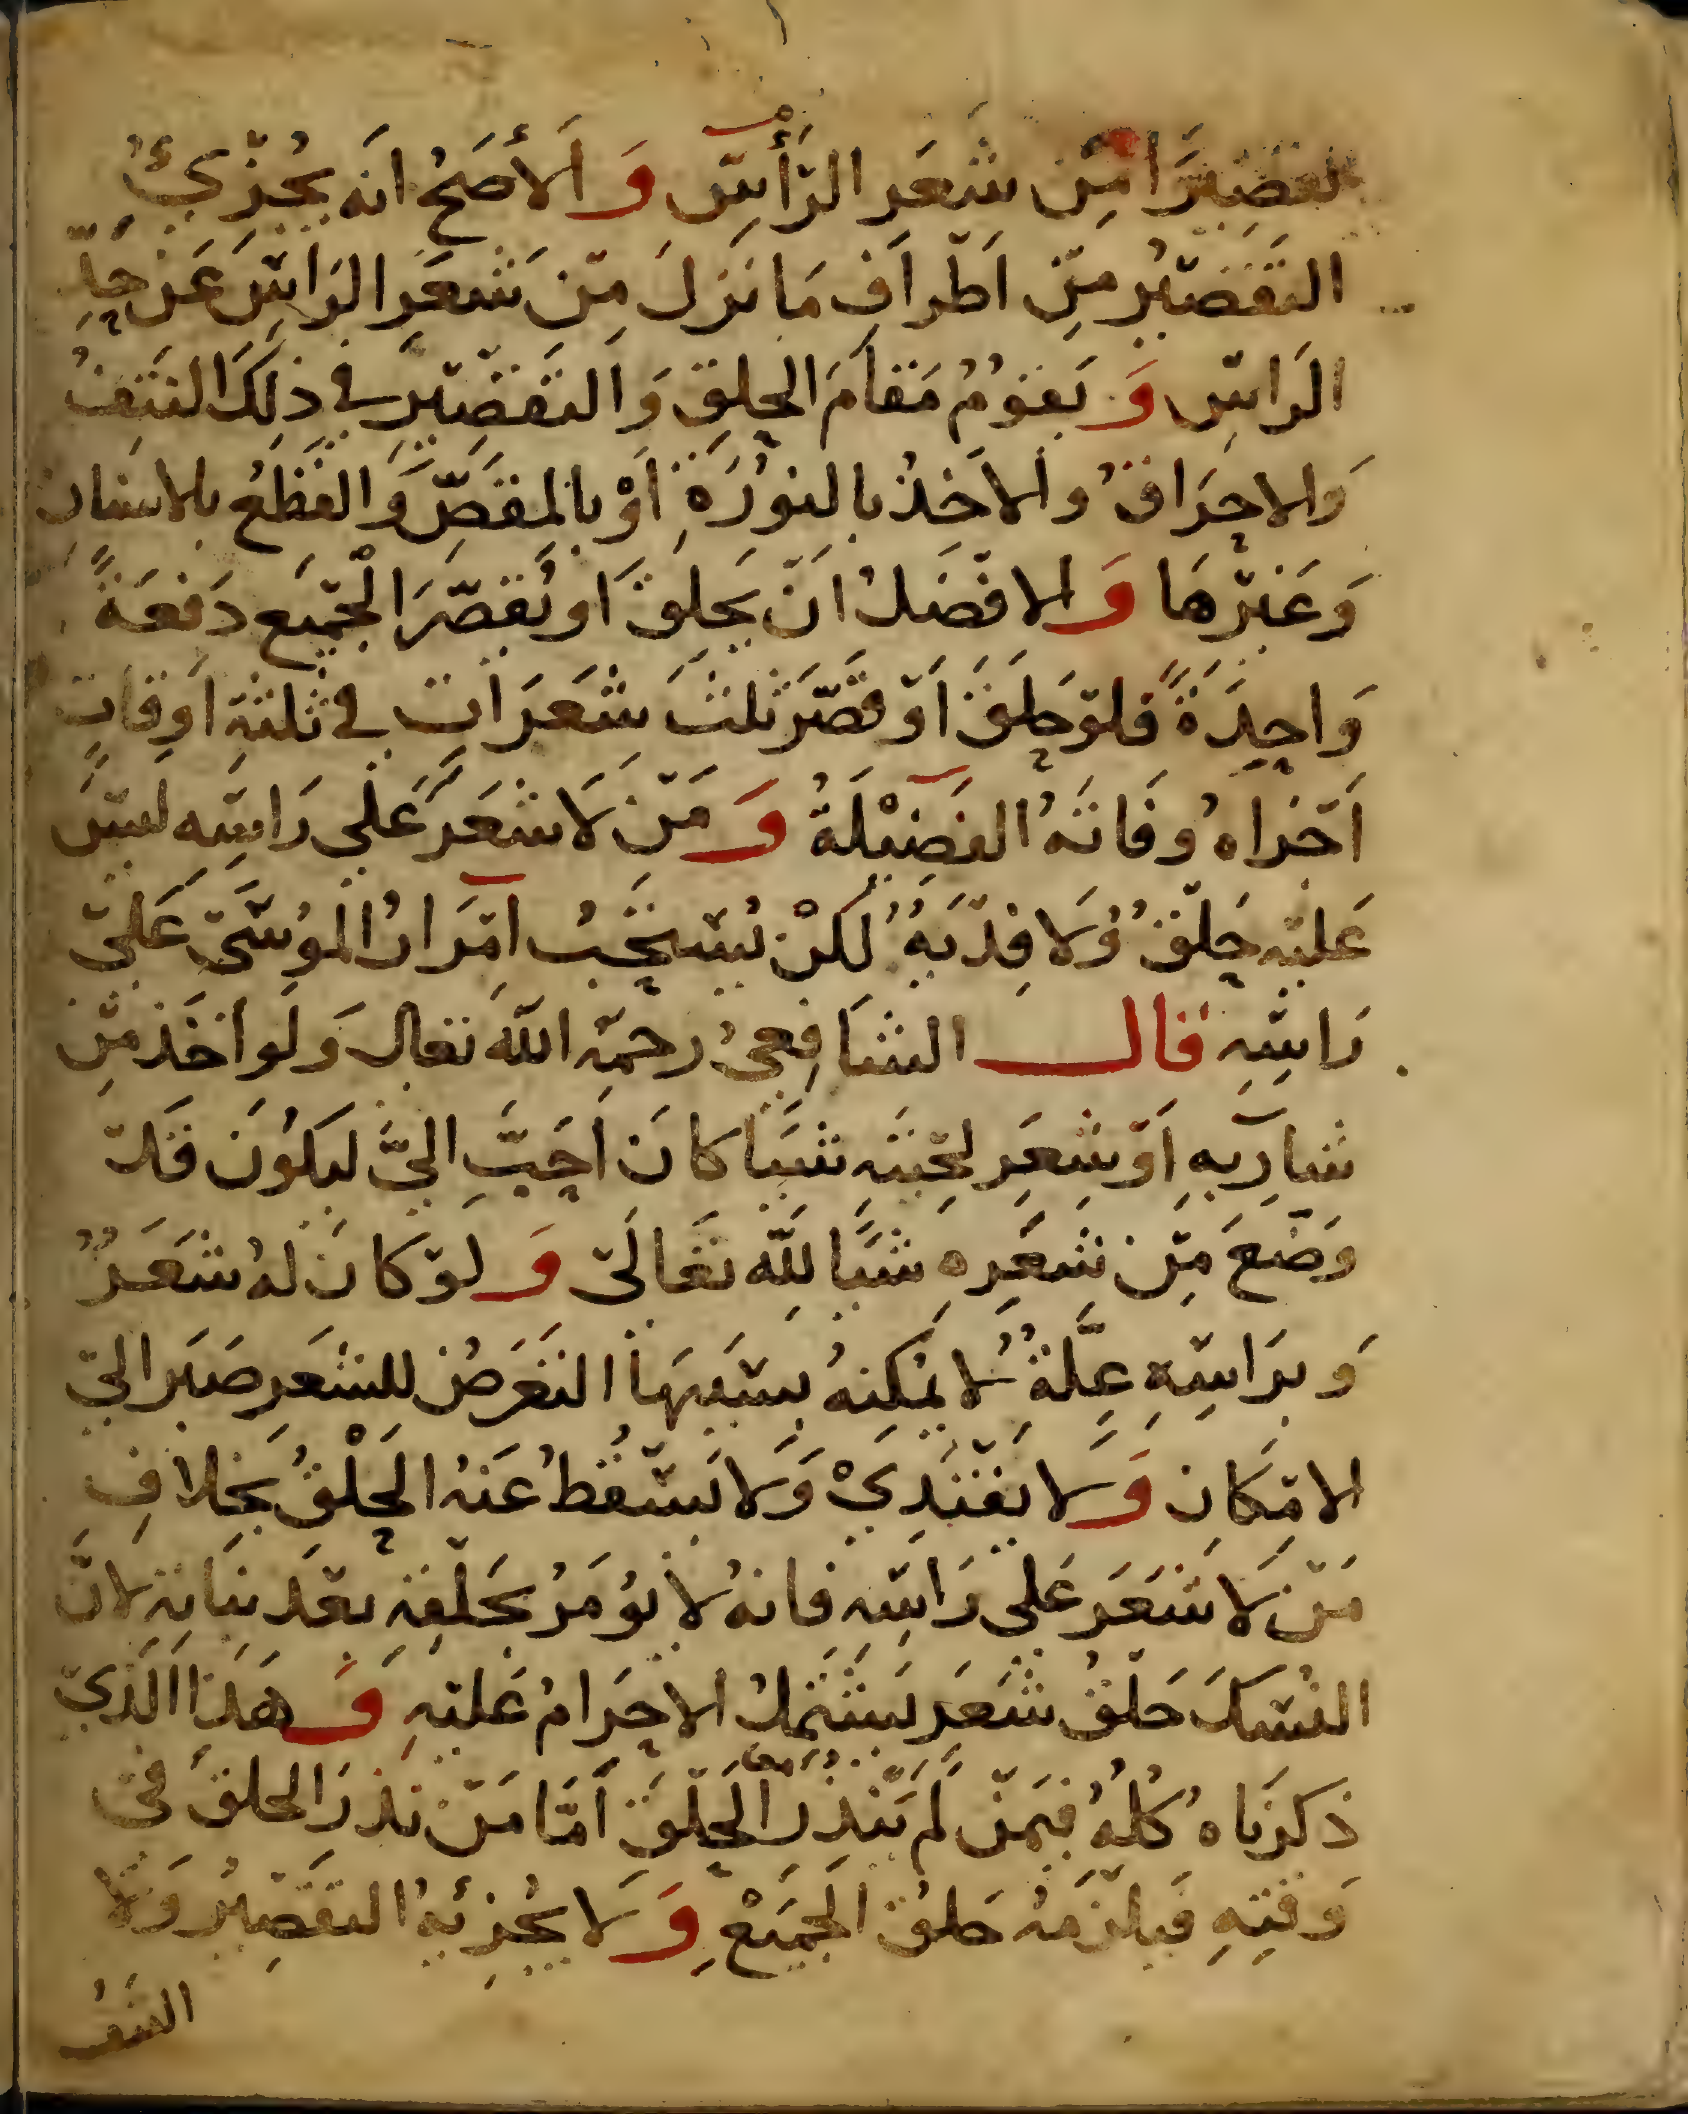 تقصيرا من شعر الرأس والأصح انه يجزئ
التقصير من اطراف ما نزل من شعر الراس عن حد
الراس ويقوم مقام الحلق والتقصير في ذلك النتف
والاحراق والاخذ بالنورة او بالمقص والقطع بالاسنان
وغيرها والافضل ان يحلق او يقصر الجميع دفعة
واحدة فلو حلق او قصر ثلث شعرات في ثلثة اوقات
اجزاه وفاته الفضيلة ومن لا شعر على راسه ليس
عليه حلق ولا فدية لكن يستحب امرار الموسى على
راسه قال الشافعي رحمه الله تعالى ولو اخذ من
شاربه او شعر لحيته شيا كان احب الي ليكون قد
وضع من شعره شيا لله تعالى ولو كان له شعر
وبراسه علة لا يمكنه بسببها التعرض للشعر صبر الى
الامكان ولا يفتدي ولا يسقط عنه الحلق بخلاف
من لا شعر على راسه فانه لا يومر بحلقه بعد نباته لان
النسك حلق شعر يشتمل الاحرام عليه وهذا الذي
ذكرناه كله فيمن لم ينذر الحلق اما من نذر الحلق في
وقته فيلزمه حلق الجميع ولا يجزئه التقصير ولا
النتف